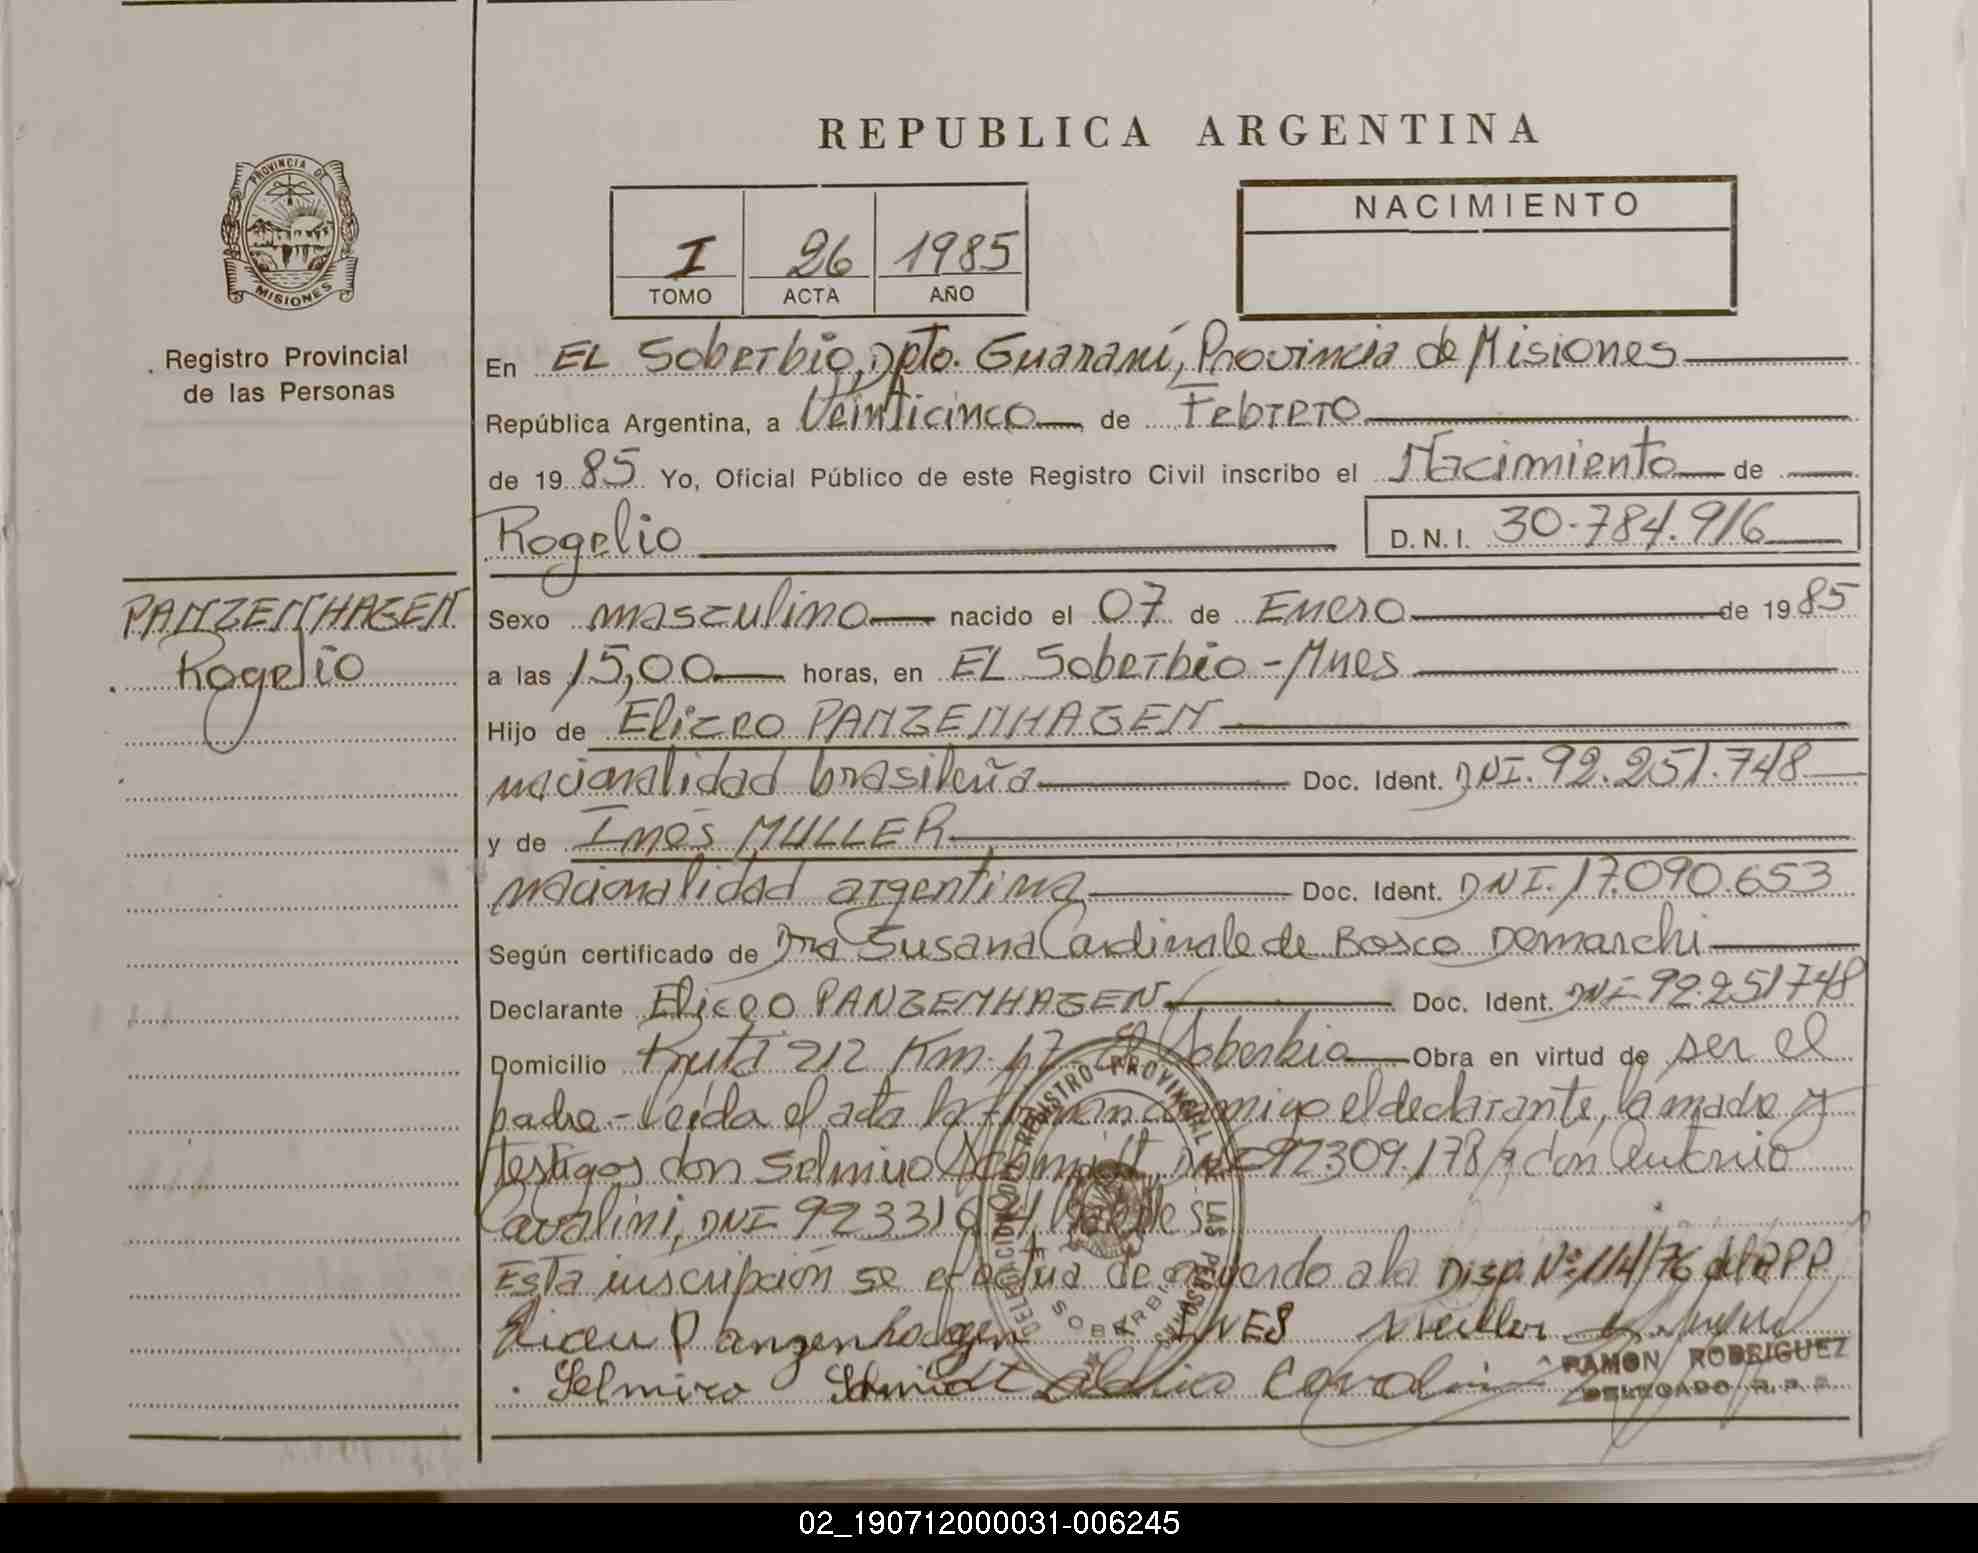 REPUBLICA ARGENTINA
PROVINCIA DE
MISIONES
Registro Provincial
de las Personas
I 26 1985
TOMO ACTA AÑO
NACIMIENTO
En EL Soberbio, Dpto. Guaraní, Provincia de Misiones
República Argentina, a Veinticinco de Febrero
de 1985 Yo, Oficial Público de este Registro Civil inscribo el Nacimiento de
Rogelio D.N.I. 30.784.916
PANZENHAGEN
Rogelio
Sexo masculino nacido el 07 de Enero de 1985
a las 15,00 horas, en EL Soberbio - Mnes
Hijo de Eliceo PANZENHAGEN
nacionalidad brasileña Doc. Ident. DNI. 92.251.748
y de Inés MULLER
nacionalidad argentina Doc. Ident. DNI. 17.090.653
Según certificado de Dra Susana Cardinale de Bosco Demarchi
Declarante Eliceo PANZENHAGEN Doc. Ident. DNI 92.251748
Domicilio Ruta 212 Km. 17 El Soberbio Obra en virtud de ser el
padre - Leída el acta la firman conmigo el declarante, la madre y
testigos don Selmiro Schmidt, DNI 92309.178 y don Antonio
Cavalini, DNI
Esta inscripción se efectua de acuerdo a la Disp. Nº 114/76 del RPP
Eliceu Panzenhagen INES Müller
Selmiro Schmidt
REGISTRO PROVINCIAL
DE LAS PERSONAS
SOBERBIO
RAMON RODRIGUEZ
DELEGADO R.P.P.
02_190712000031-006245